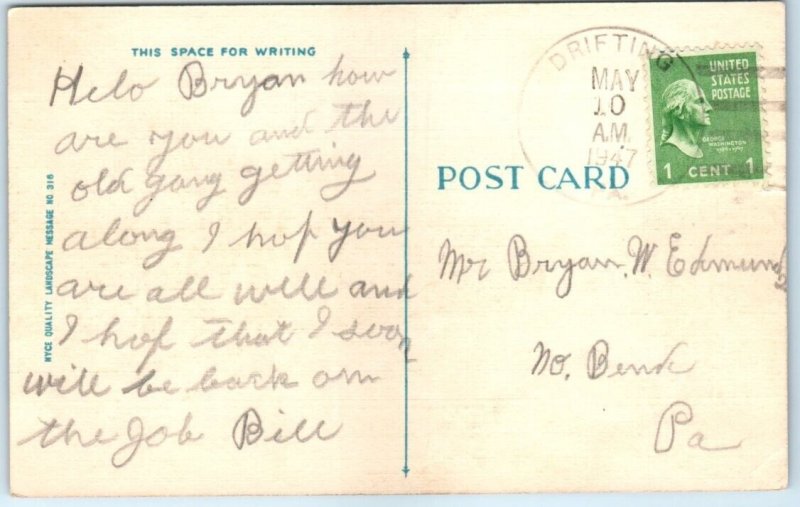 THIS SPACE FOR WRITING
Helo Bryan how
are you and the
old gang getting
along I hop you
are all well and
I hop that I soon
will be back on
the Job Bill
NYCE QUALITY LANDSCAPE MESSAGE NO 316
DRIFTING
MAY
10
A.M.
1947
PA.
UNITED
STATES
POSTAGE
GEORGE
WASHINGTON
1 CENT 1
POST CARD
Mr Bryan. W. Edmunds
No. Bend
Pa